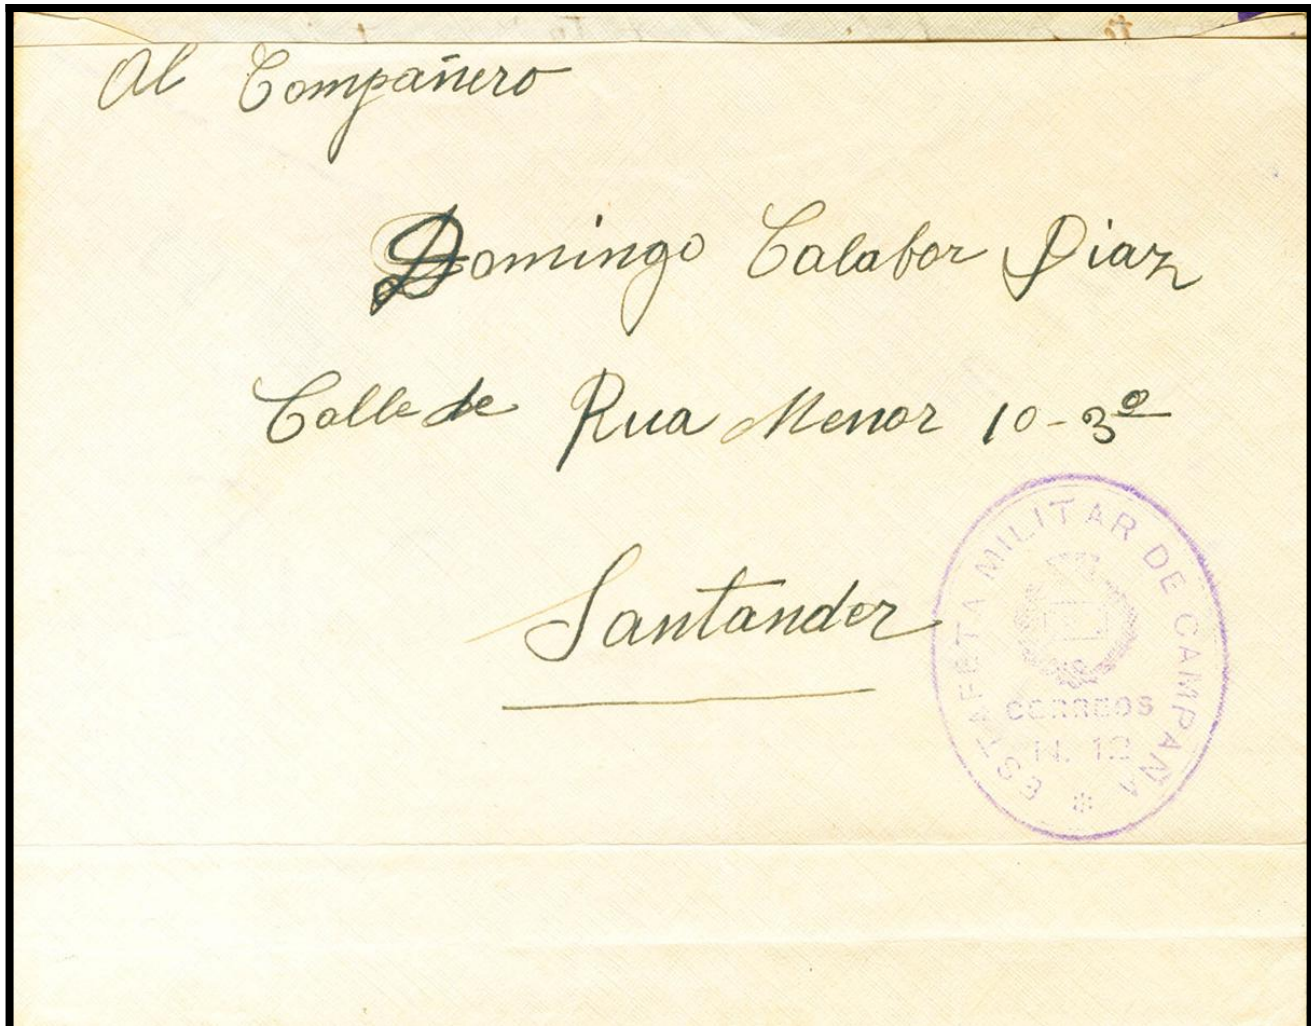 Al Compañero
Domingo Calabor Diaz
Calle de Rua Menor 10-3º
Santander
ESTAFETA MILITAR DE CAMPAÑA *
CORREOS
N. 12